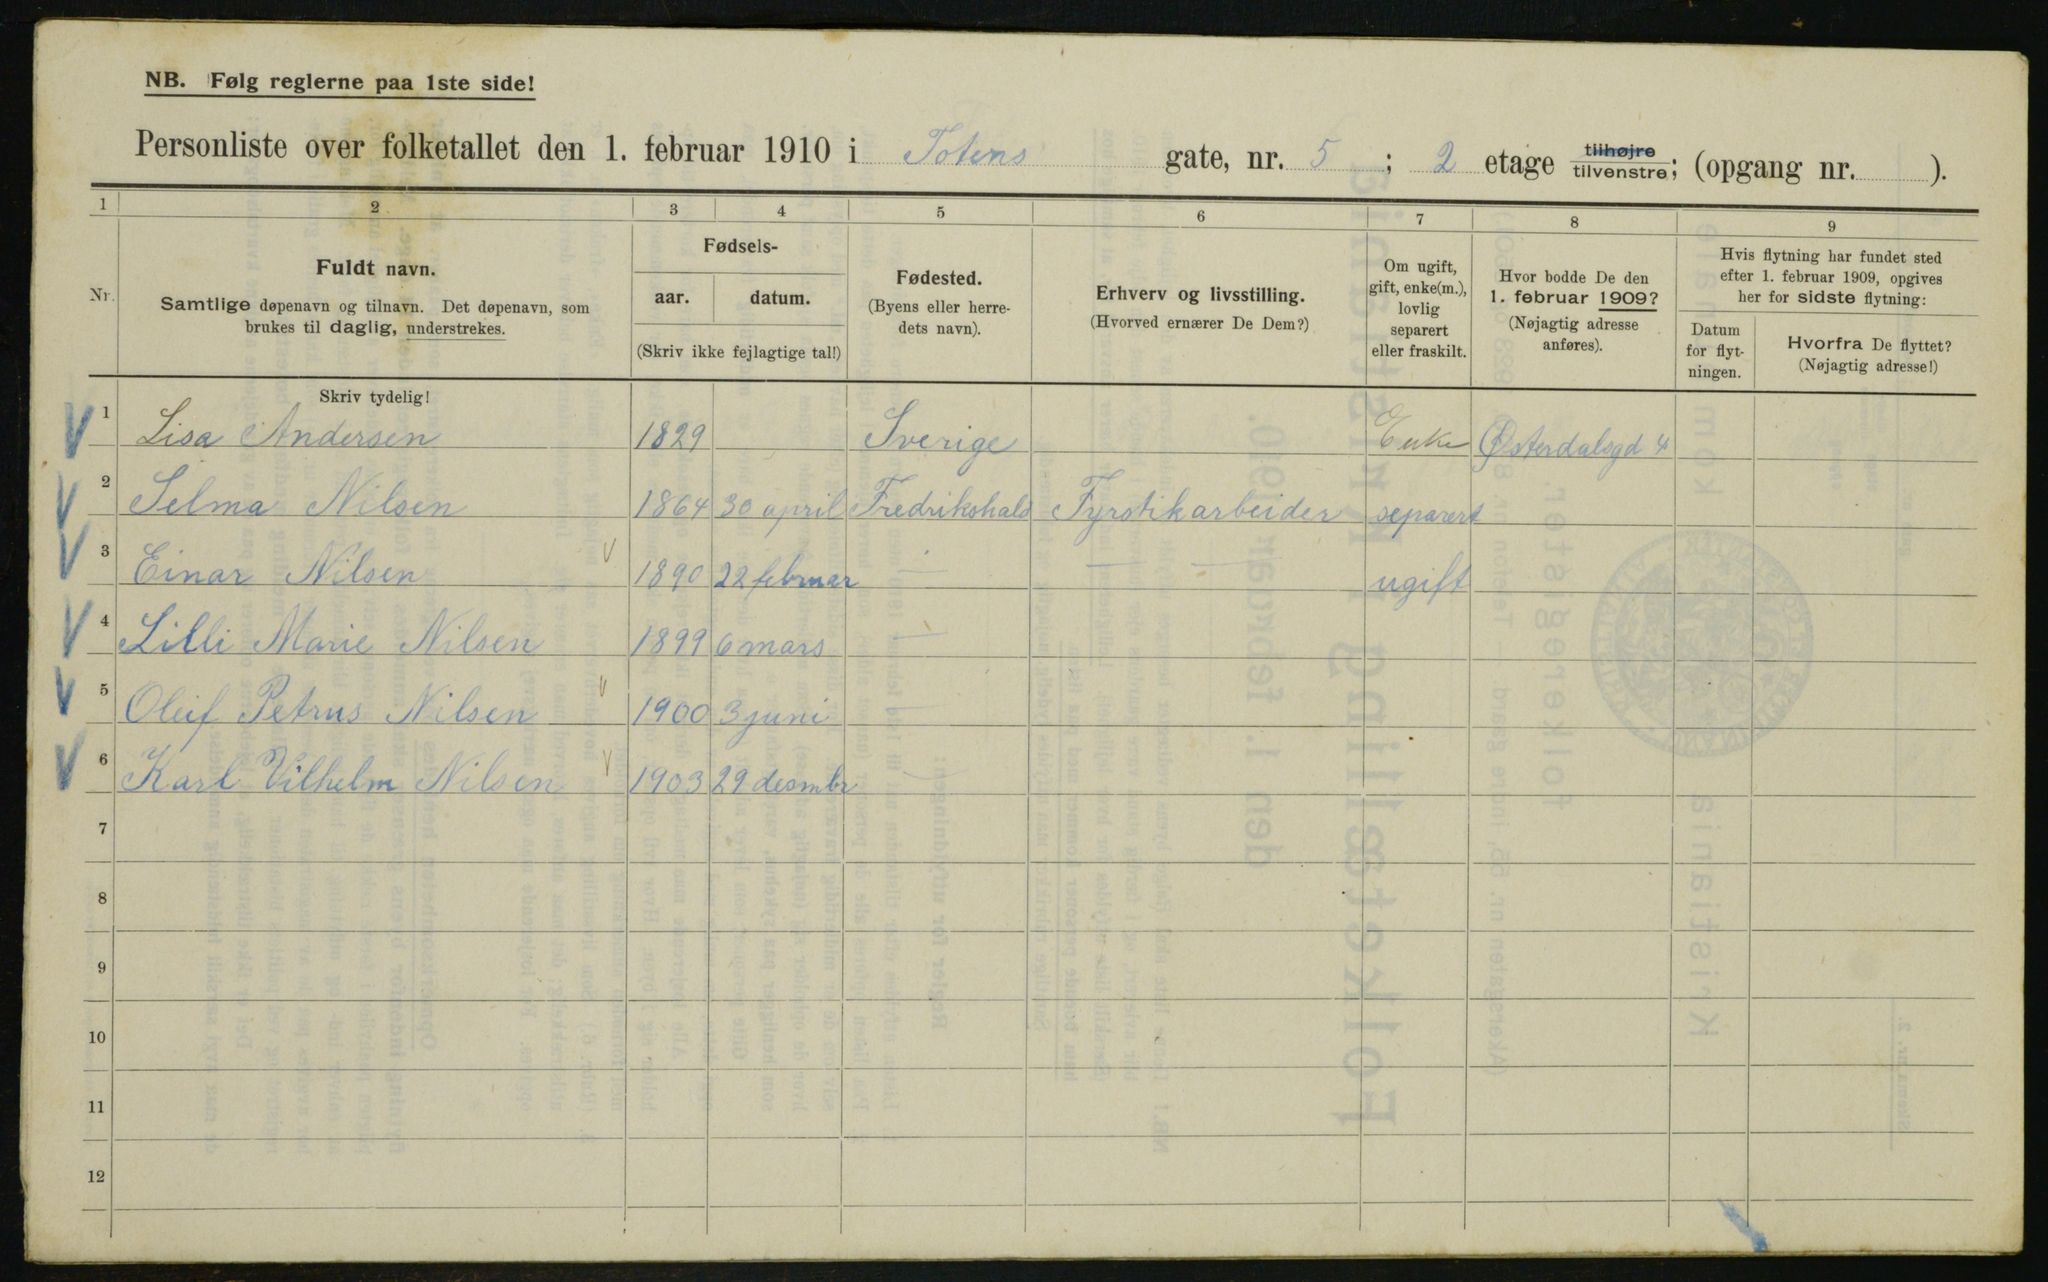 NB. Følg reglerne paa 1ste side!
Personliste over folketallet den 1. februar 1910 i Totens gate, nr. 5 ; 2 etage tilhøjre tilvenstre; (opgang nr. ).
1 2 3 4 5 6 7 8 9
Nr.
Fuldt navn.
Samtlige døpenavn og tilnavn. Det døpenavn, som
brukes til daglig, understrekes.
Fødsels-
aar. datum.
(Skriv ikke fejlagtige tal!)
Fødested.
(Byens eller herre-
dets navn).
Erhverv og livsstilling.
(Hvorved ernærer De Dem?)
Om ugift,
gift, enke(m.),
lovlig
separert
eller fraskilt.
Hvor bodde De den
1. februar 1909?
(Nøjagtig adresse
anføres).
Hvis flytning har fundet sted
efter 1. februar 1909, opgives
her for sidste flytning:
Datum
for flyt-
ningen.
Hvorfra De flyttet?
(Nøjagtig adresse!)
Skriv tydelig!
1 Lisa Andersen 1829 Sverige Enke Østerdalsgd 4
2 Selma Nilsen 1864 30 april Fredrikshald Fyrstikarbeider separert
3 Einar Nilsen 1890 22 februar — — — ugift
4 Lilli Marie Nilsen 1899 6 mars —
5 Oleif Petrus Nilsen 1900 3 juni —
6 Karl Vilhelm Nilsen 1903 29 desmbr —
7
8
9
10
11
12